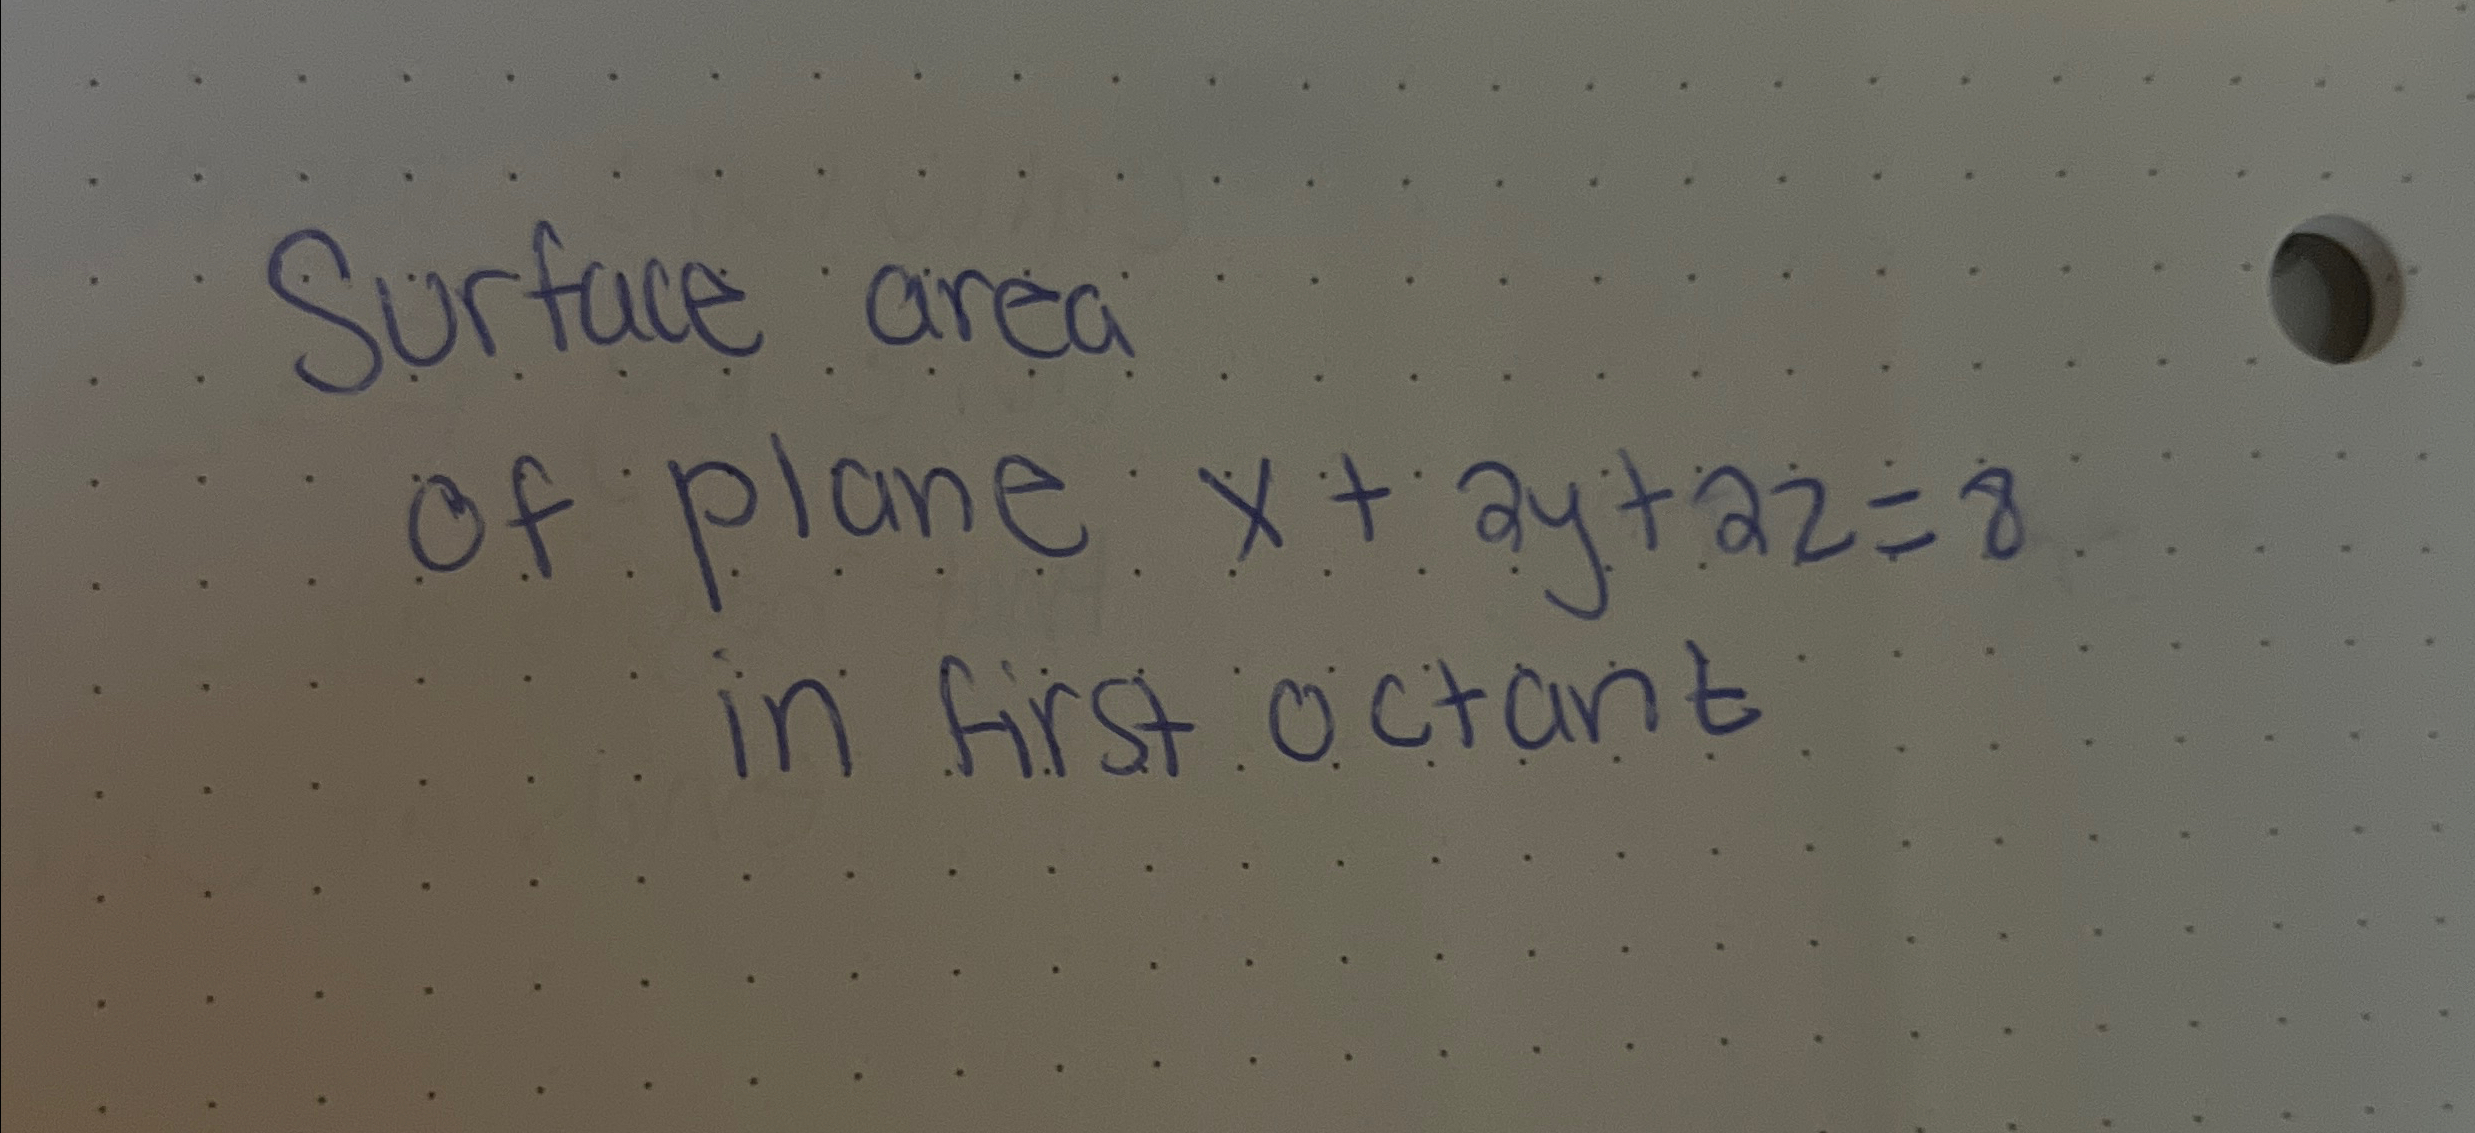 Surface area
of plane x + 2y + 2z = 8
in first octant